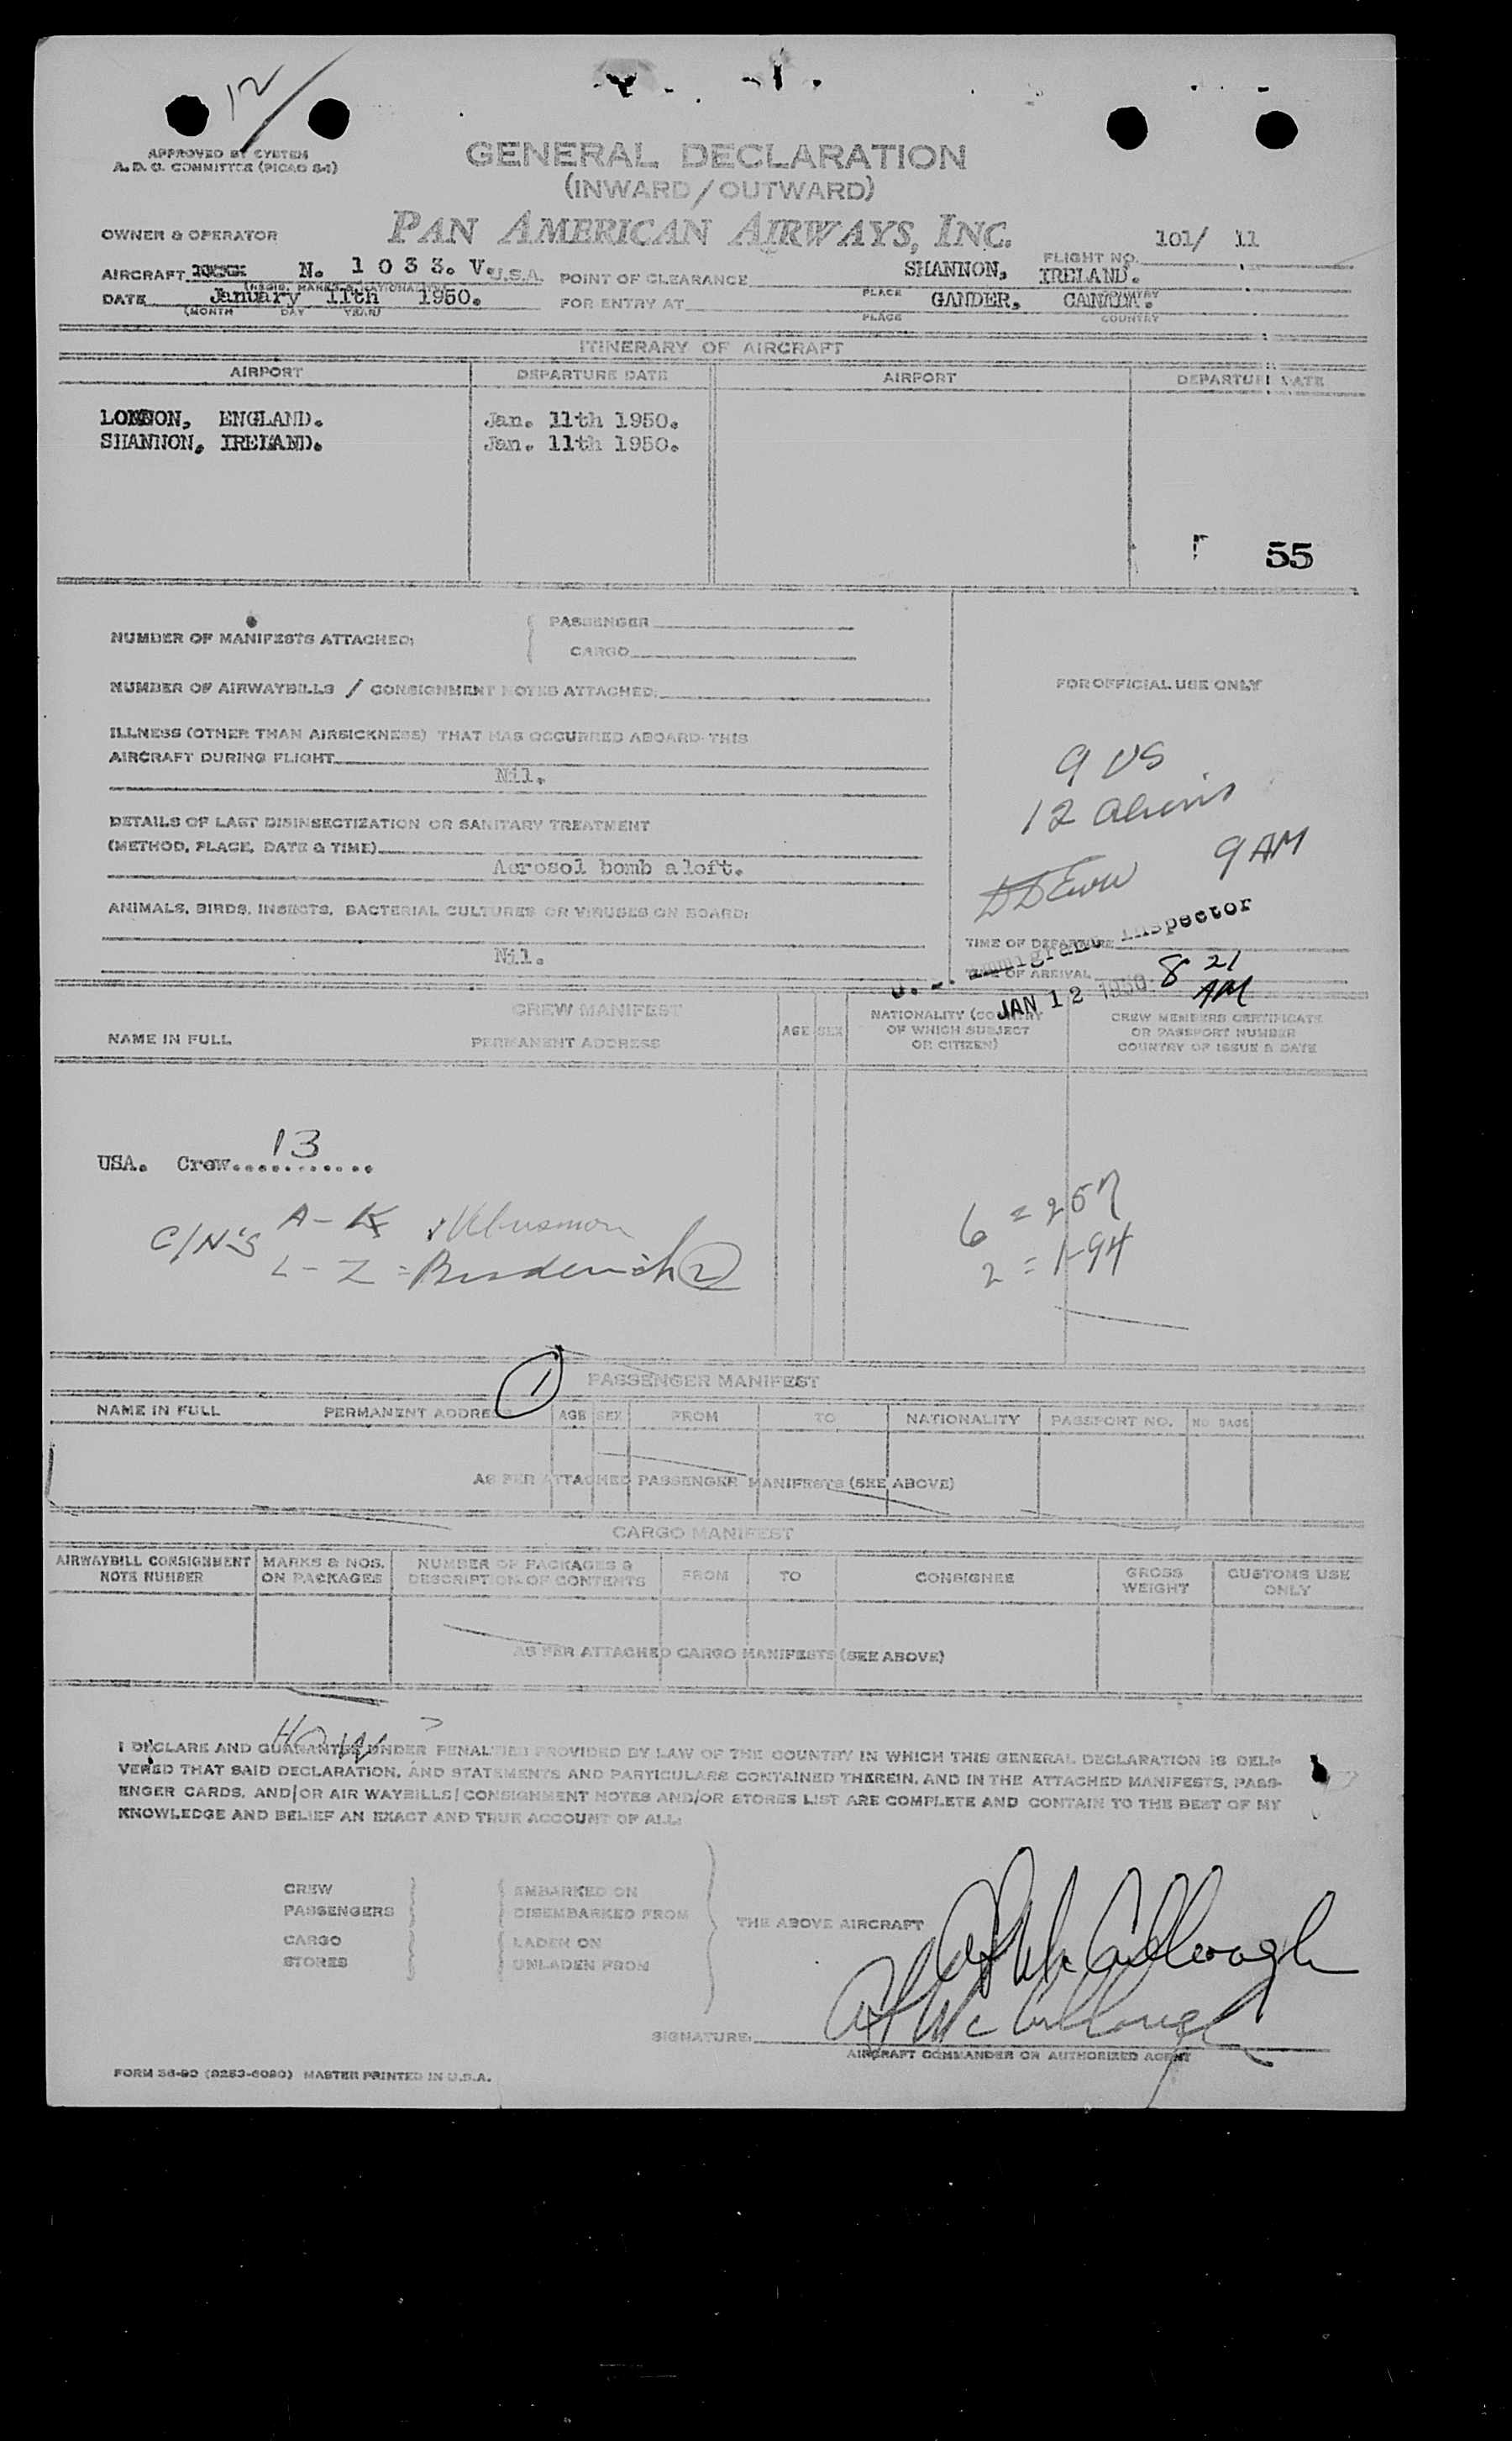 12
APPROVED BY CYSTEM
A. D. C. COMMITTEE (PICAO 84)
GENERAL DECLARATION
(INWARD/OUTWARD)
OWNER & OPERATOR PAN AMERICAN AIRWAYS, INC.
FLIGHT NO. 101/ 11
AIRCRAFT N. 1 0 3 3. V. U.S.A. POINT OF CLEARANCE SHANNON, IRELAND.
(REGIS. MARKS & NATIONALITY) PLACE COUNTRY
DATE January 11th 1950. FOR ENTRY AT GANDER, CANADA.
(MONTH DAY YEAR) PLACE COUNTRY
ITINERARY OF AIRCRAFT
AIRPORT DEPARTURE DATE AIRPORT DEPARTURE DATE
LONDON, ENGLAND. Jan. 11th 1950.
SHANNON, IRELAND. Jan. 11th 1950.
55
NUMBER OF MANIFESTS ATTACHED: PASSENGER
CARGO
NUMBER OF AIRWAYBILLS / CONSIGNMENT NOTES ATTACHED:
FOR OFFICIAL USE ONLY
ILLNESS (OTHER THAN AIRSICKNESS) THAT HAS OCCURRED ABOARD THIS
AIRCRAFT DURING FLIGHT
Nil.
9 US
12 Aliens
DETAILS OF LAST DISINSECTIZATION OR SANITARY TREATMENT
(METHOD, PLACE, DATE & TIME)
Aerosol bomb aloft.
9 AM
ANIMALS, BIRDS, INSECTS, BACTERIAL CULTURES OR VIRUSES ON BOARD:
Nil.
TIME OF DEPARTURE
Immigrant Inspector
TIME OF ARRIVAL 8 21 AM
JAN 12 1950
CREW MANIFEST
NAME IN FULL PERMANENT ADDRESS AGE SEX NATIONALITY (COUNTRY OF WHICH SUBJECT OR CITIZEN) CREW MEMBERS CERTIFICATE OR PASSPORT NUMBER COUNTRY OF ISSUE & DATE
USA. Crew............ 13
C/N'S A - K
L - Z = Broderick 2
6 = 257
2 = 1-94
1
PASSENGER MANIFEST
NAME IN FULL PERMANENT ADDRESS AGE SEX FROM TO NATIONALITY PASSPORT NO. NO. BAGS
AS PER ATTACHED PASSENGER MANIFESTS (SEE ABOVE)
CARGO MANIFEST
AIRWAYBILL CONSIGNMENT NOTE NUMBER MARKS & NOS. ON PACKAGES NUMBER OF PACKAGES & DESCRIPTION OF CONTENTS FROM TO CONSIGNEE GROSS WEIGHT CUSTOMS USE ONLY
AS PER ATTACHED CARGO MANIFESTS (SEE ABOVE)
I DECLARE AND GUARANTEE UNDER PENALTIES PROVIDED BY LAW OF THE COUNTRY IN WHICH THIS GENERAL DECLARATION IS DELI-
VERED THAT SAID DECLARATION, AND STATEMENTS AND PARTICULARS CONTAINED THEREIN, AND IN THE ATTACHED MANIFESTS, PASS-
ENGER CARDS, AND/OR AIR WAYBILLS/CONSIGNMENT NOTES AND/OR STORES LIST ARE COMPLETE AND CONTAIN TO THE BEST OF MY
KNOWLEDGE AND BELIEF AN EXACT AND TRUE ACCOUNT OF ALL:
CREW EMBARKED ON
PASSENGERS DISEMBARKED FROM
THE ABOVE AIRCRAFT
CARGO LADEN ON
STORES UNLADEN FROM
SIGNATURE: McCullough
AIRCRAFT COMMANDER OR AUTHORIZED AGENT
FORM 56-90 (9253-6090) MASTER PRINTED IN U.S.A.